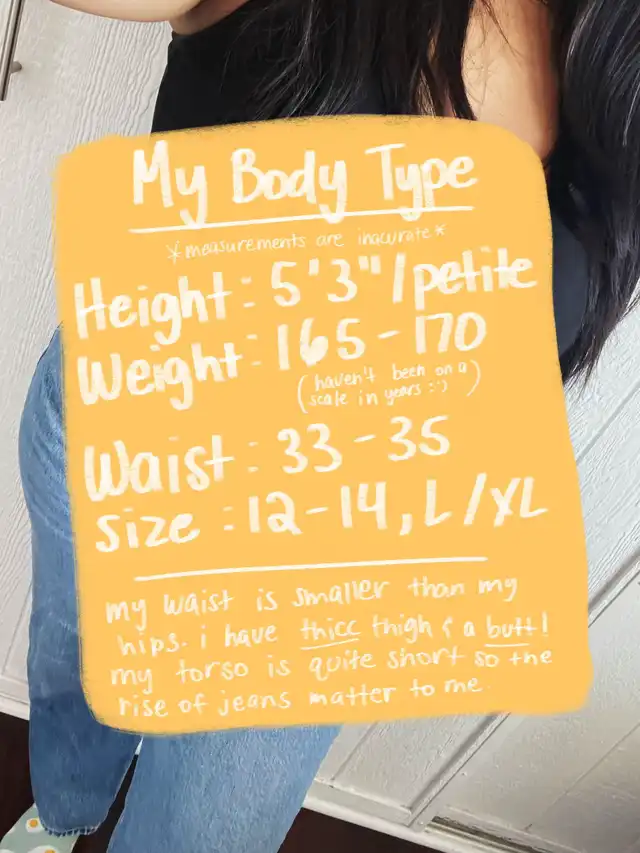 My Body Type
*measurements are inacurate*
Height: 5'3"/petite
Weight: 165-170
(haven't been on a
scale in years :'))
Waist: 33-35
size: 12-14, L/XL
my waist is smaller than my
hips. i have thicc thigh & a butt!
my torso is quite short so the
rise of jeans matter to me.